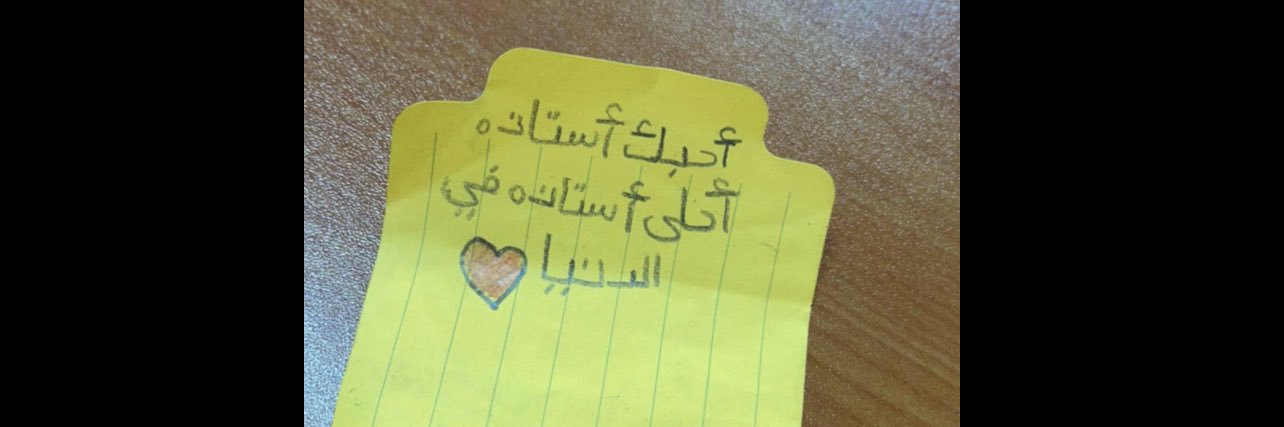 أحبك أستاذه
أحلى أستاذه في
الدنيا